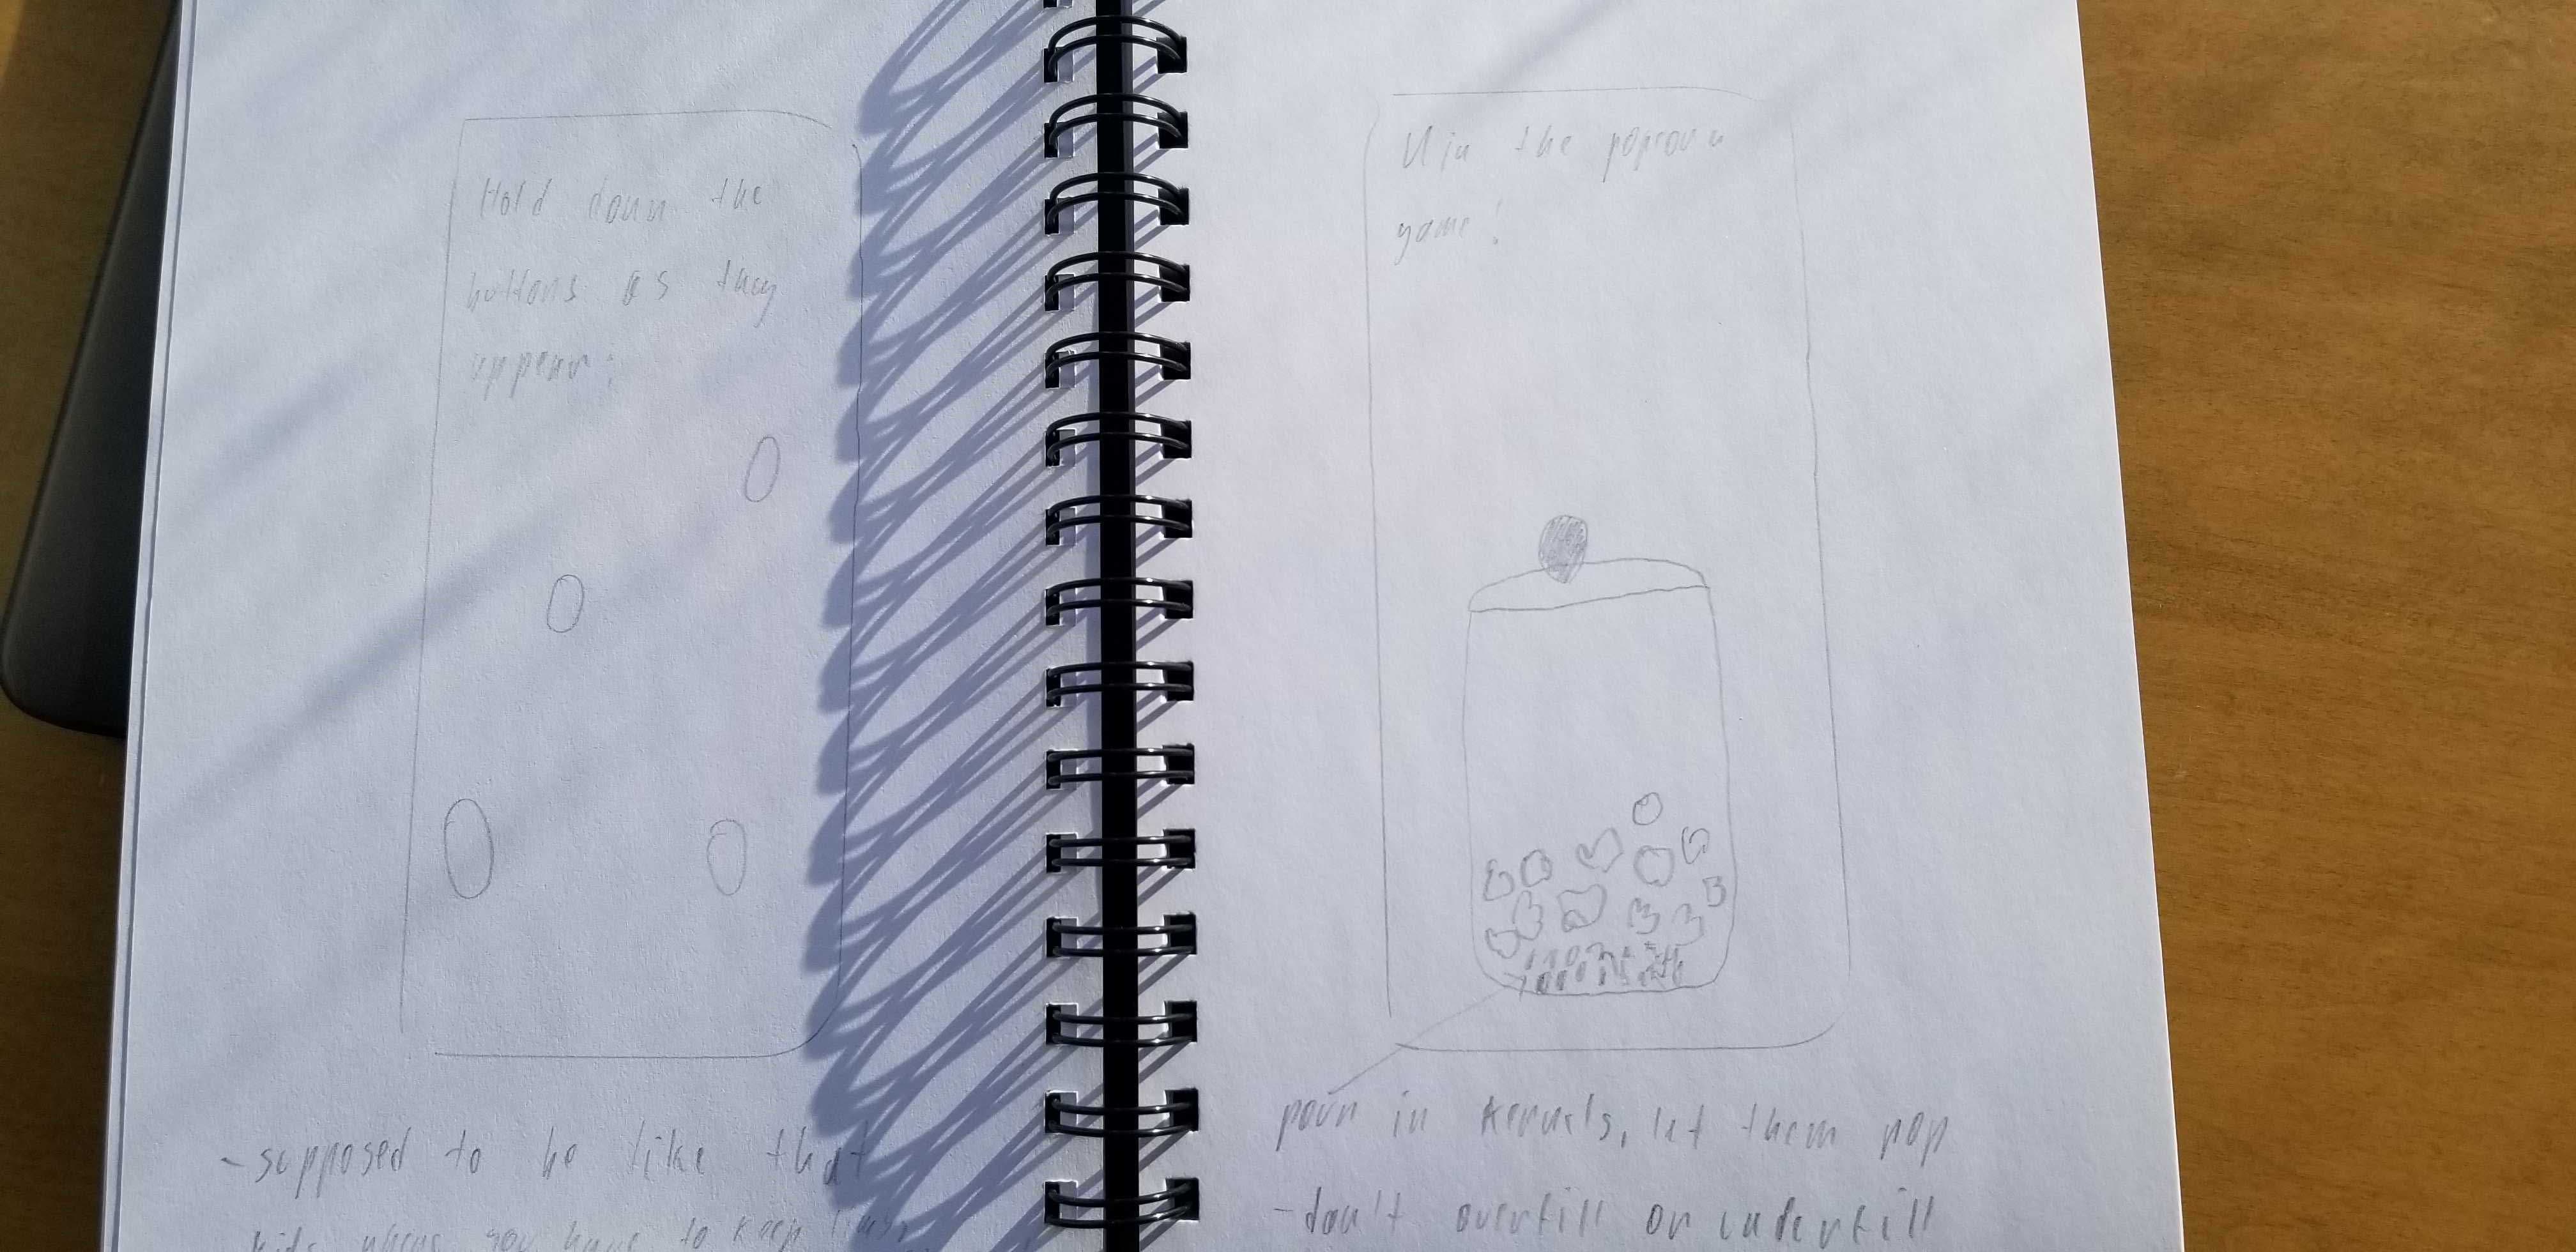 Hold down the
buttons as they
appear:
- supposed to be like that
kids where you have to keep
Win the popcorn
game!
pour in kernels, let them pop
- don't overfill or underfill